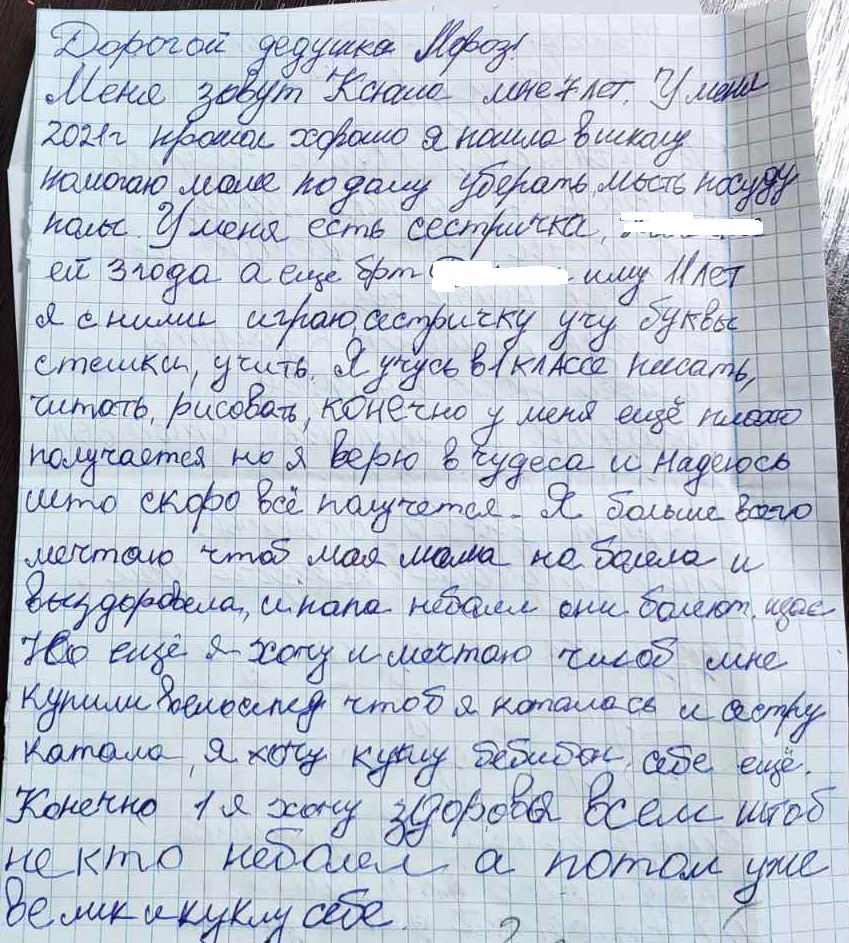 Дорогой дедушка Мороз!
Меня зовут Ксюша мне 7 лет. У меня
2021г прошол хорошо я пошла в школу
памогаю маме по дому уберать, мыть посуду
полы. У меня есть сестричка,
ей 3 года а еще брт иму 11 лет
я с ними играю, сестричку учу буквы
стешки, учить. Я учусь в 1 классе писать,
читать, рисовать, конечно у меня ещё плохо
получается но я верю в чудеса и надеюсь
што скоро всё палучется. Я больше всего
мечтаю чтоб мая мама не балела и
выздоровела, и папа небалел они болеют щас
Но ещё я хочу и мечтаю чтоб мне
купили велоспед чтоб я каталась и сестру
катала, я хочу куклу бебибон себе ещё.
Конечно 1 я хочу здоровья всем штоб
не кто неболел а потом уже
велик и куклу себе.